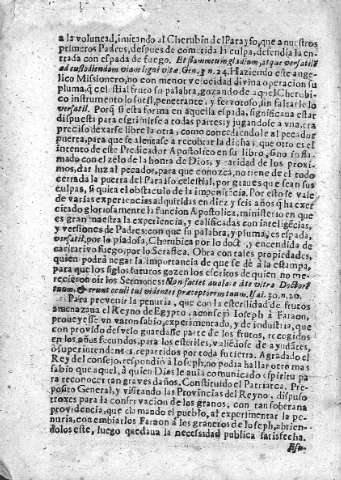 a la voluntad, imitando al Cherubin del Parayso, que a nuestros
primeros Padres, despues de cometida la culpa, defendia la en-
trada con espada de fuego. Et flammeum gladium, atque versatilẽ
ad custodiendam viam ligni vitæ. Gen. 3. n. 24. Haziendo este ange-
lico Missionero, no con menor velocidad divina operacion su
pluma, q̃ celestial fruto su palabra, gozando de aquel Cherubi-
co instrumento lo sutil, penetrante, y fervoroso, sin faltarle lo
versatil. Porq̃ si esta forma en aquella espada, significava estar
dispuesta para esgrimirse a todas partes; y jugandose a vna, era
preciso dexarse libre la otra, como concediendole al pecador
puerta, para que se alentase a recobrar la dicha; que otro es el
intento de este Predicador Apostolico en su libro, sino infla-
mado con el zelo de la honra de Dios, y caridad de los proxi-
mos, dar luz al pecador, para que conozca, no tiene de el todo
cerrada la puerta del Parayso celestial, por graves que sean sus
culpas, si quita el obstaculo de la impenitencia. Por esto se vale
de varias experiencias adquiridas en diez y seis años q̃ ha exer-
citado gloriosamente la funcion Apostolica, ministerio en que
es gran maestra la experiencia, y calificadas con inteligẽcias,
y versiones de Padres: con que su palabra, y pluma, es espada,
versatil, por lo piadosa, Cherubica por lo docta, y encendida de
caritativo fuego por lo Serafica. Obra con tales propiedades,
quien podrá negar la importancia de que se dè a la estampa,
para que los siglos futuros gozen los escritos de quien no me-
recieron oir los Sermones: Non faciet avolare à te vltra Doctorẽ
tuum, & erunt oculi tui videntes præceptorem tuum. Isai. 30. n. 20.
Para prevenir la penuria, que con la esterilidad de frutos
amenazava el Reyno de Egypto, aconsejò Ioseph a Faraon,
proveyesse vn varon sabio, experimentado, y de industria, que
con provido desvelo guardasse parte de los frutos, recogidos
en los años fecundos, para los esteriles, valiẽdose de ayudãtes,
ò superintendentes repartidos por toda su tierra. Agradado el
Rey del consejo, respondiò a Ioseph, no podia hallar otro mas
sabio que aquel, à quien Dios le avia comunicado espiritu pa-
ra reconocer tan graves daños. Constituido el Patriarca, Pre-
posito General, y visitando las Provincias del Reyno, dispuso
troxes para la conservacion de los granos, con tan soberana
providencia, que clamando el pueblo, al experimentar la pe-
nuria, con embiarlos Faraon à los graneros de Ioseph, abrien-
dolos este, luego quedava la necessidad publica satisfecha.